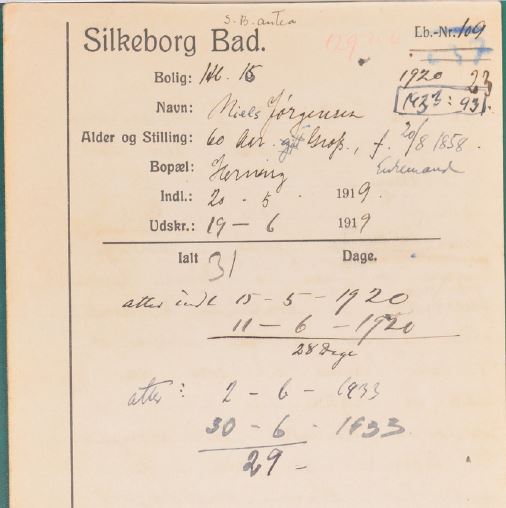 S. B. antea
Silkeborg Bad.
Lb.-Nr. 109
129
637
Bolig: Kl. 15
1920 23
1933: 93
Navn: Niels Jørgensen
Alder og Stilling: 60 Aar. gift Gross., f. 20/8 1858.
Bopæl: Herning
Enkemand
Indl.: 20 - 5 - 1919.
Udskr.: 19 - 6 1919
Ialt 31 Dage.
atter indl 15 - 5 - 1920
11 - 6 - 1920
28 Dage
atter: 2 - 6 - 1933
30 - 6 - 1933
29 -